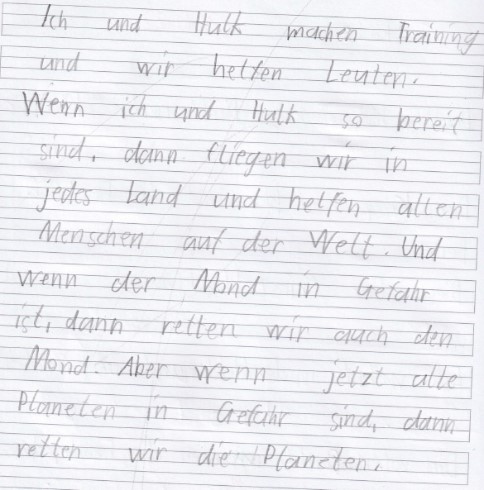 Ich und Hulk machen Training
und wir helfen Leuten.
Wenn ich und Hulk so bereit
sind, dann fliegen wir in
jedes Land und helfen allen
Menschen auf der Welt. Und
wenn der Mond in Gefahr
ist, dann retten wir auch den
Mond. Aber wenn jetzt alle
Planeten in Gefahr sind, dann
retten wir die Planeten.